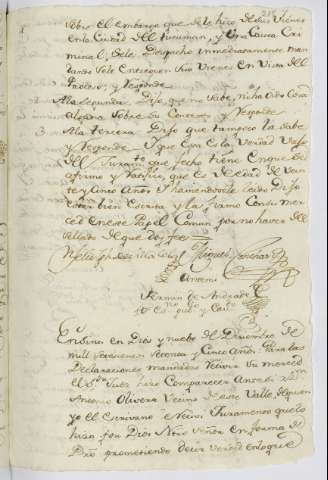 sobre el embargo que se le hizo de sus Vienes
en la Ciudad del Tucuman, y Una Causa Cri
minal, Sele despacho inmediatamente man
dando sele entreguen sus Vienes en Vista del
y responde
2 Ala segunda Dijo que no sabe, ni ha oido Cosa
alguna sobre su Contexto, y responde
3 Ala tercera Dijo que tampoco la sabe
y responde. Y que esta es la Verdad vajo
del Juramto que fecho tiene en que se
afirmo y ratifico, que es de edad de
te y cinco años, y haviendosele leido Dijo
estar bien escrita y la firmo con su mer
ced en este Papel Comun por no haver del
sellado de que doy fee
Miguel
Ante mi
Fermin de Andrade
En dies y nueve de Diziembre de
mil setecientos setenta y cinco años: Para las
Declaraciones mandadas Recivir su merced
el Sor Jues hizo Comparecer Ante si a Dn
Antonio Olivera Vecino de este Valle de quien
yo el Escrivano Recivi Juramento que lo
hizo por Dios Ntro Señor en forma de
Dro prometiendo decir verdad en lo que